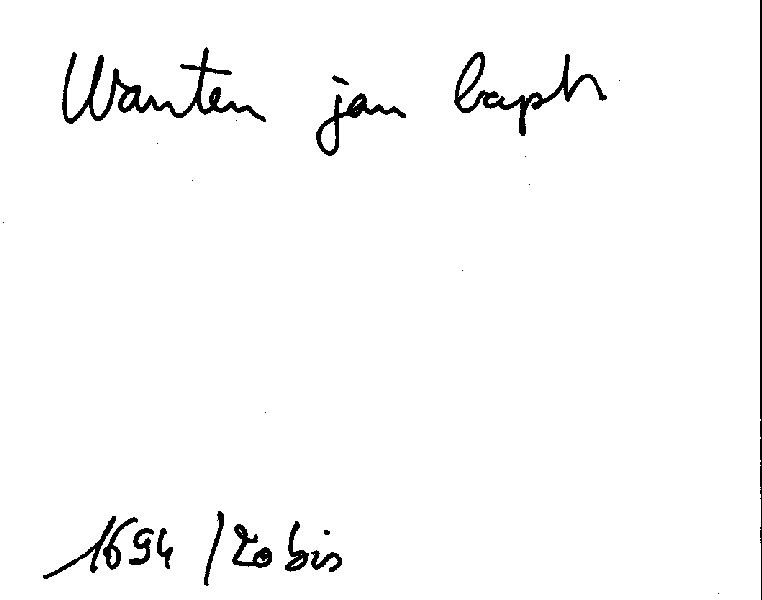 Wanten jan baph
1694 / 20 bis